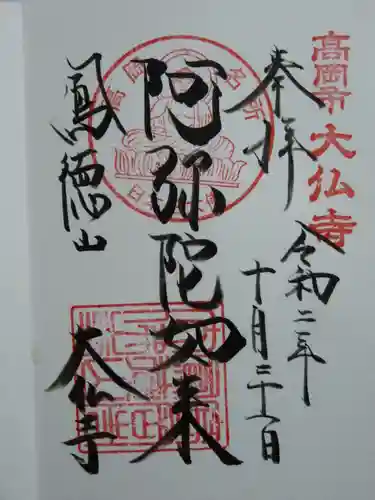 高岡市大仏寺
奉拝
令和二年
十月三十一日
阿弥陀如来
鳳徳山
大仏寺